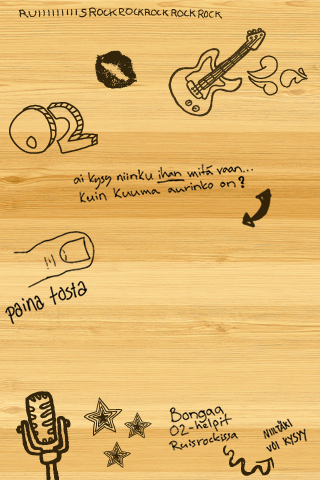 RUIIIIIIIIISROCKROCKROCKROCKROCK
O2
ai kysy niinku ihan mitä vaan...
kuin kuuma aurinko on?
paina tästä
Bongaa
O2-helpit
Ruisrockissa
NIILTÄKI
VOI KYSYY